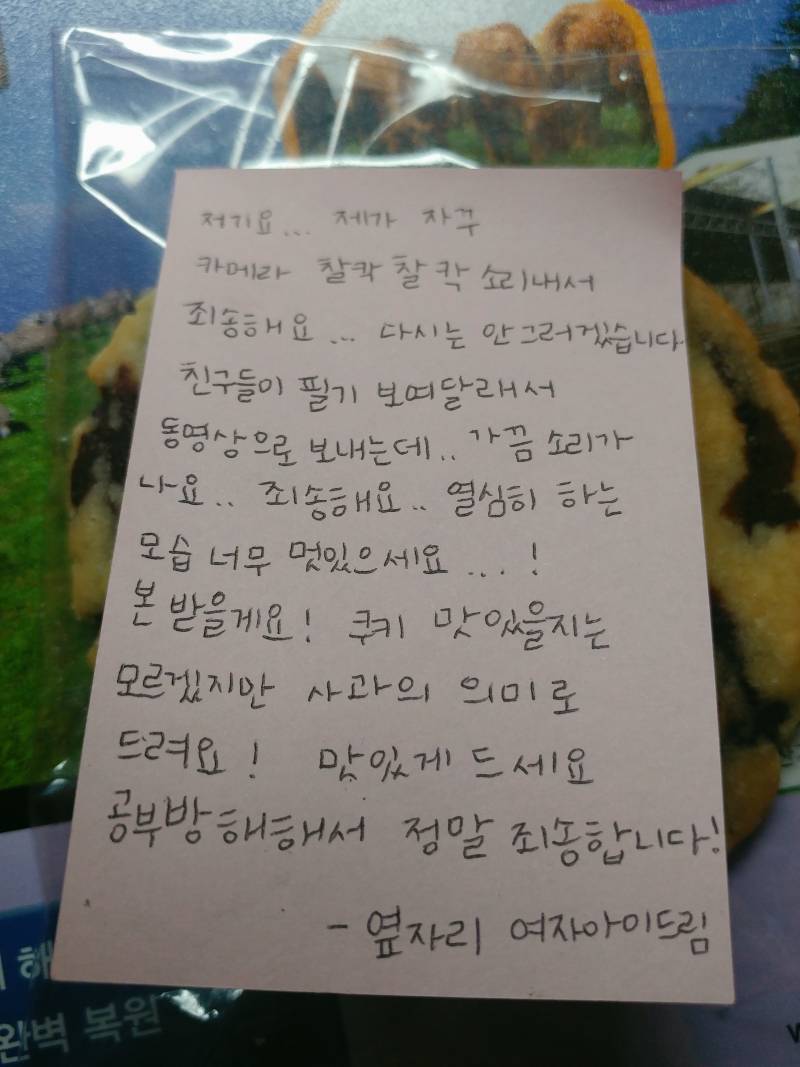 저기요... 제가 자꾸
카메라 찰칵찰칵 소리내서
죄송해요... 다시는 안그러겠습니다
친구들이 필기 보여달래서
동영상으로 보내는데.. 가끔 소리가
나요.. 죄송해요.. 열심히 하는
모습 너무 멋있으세요...!
본 받을게요! 쿠키 맛있을지는
모르겠지만 사과의 의미로
드려요! 맛있게 드세요
공부방해해서 정말 죄송합니다!
- 옆자리 여자아이드림
완벽 복원